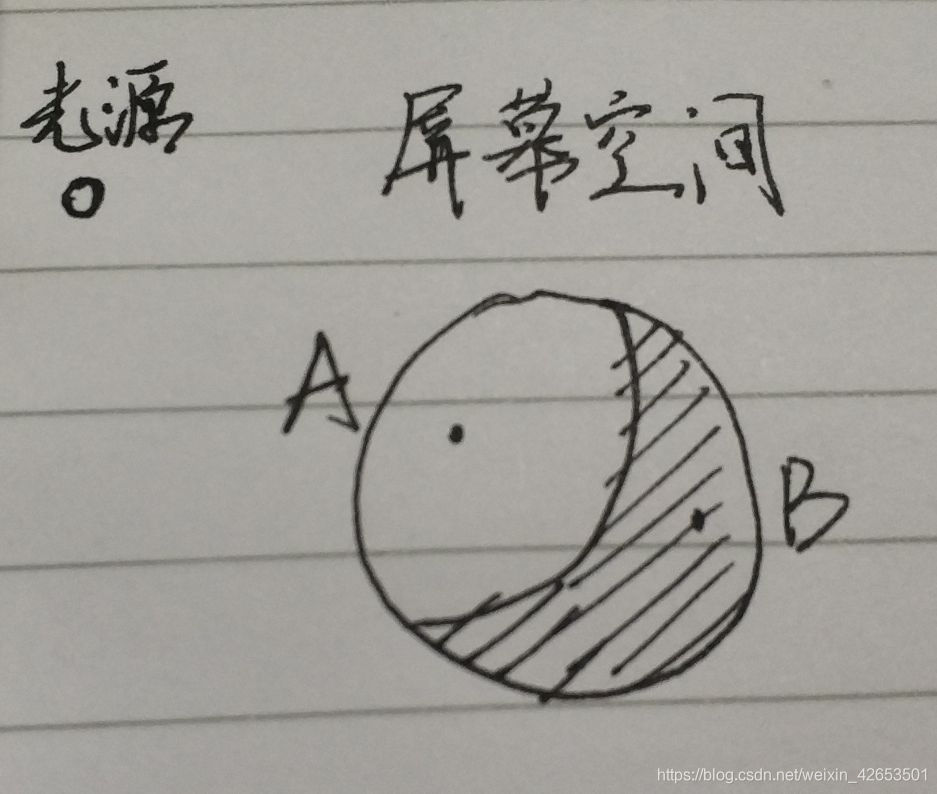 光源
屏幕空间
A
B
https://blog.csdn.net/weixin_42653501